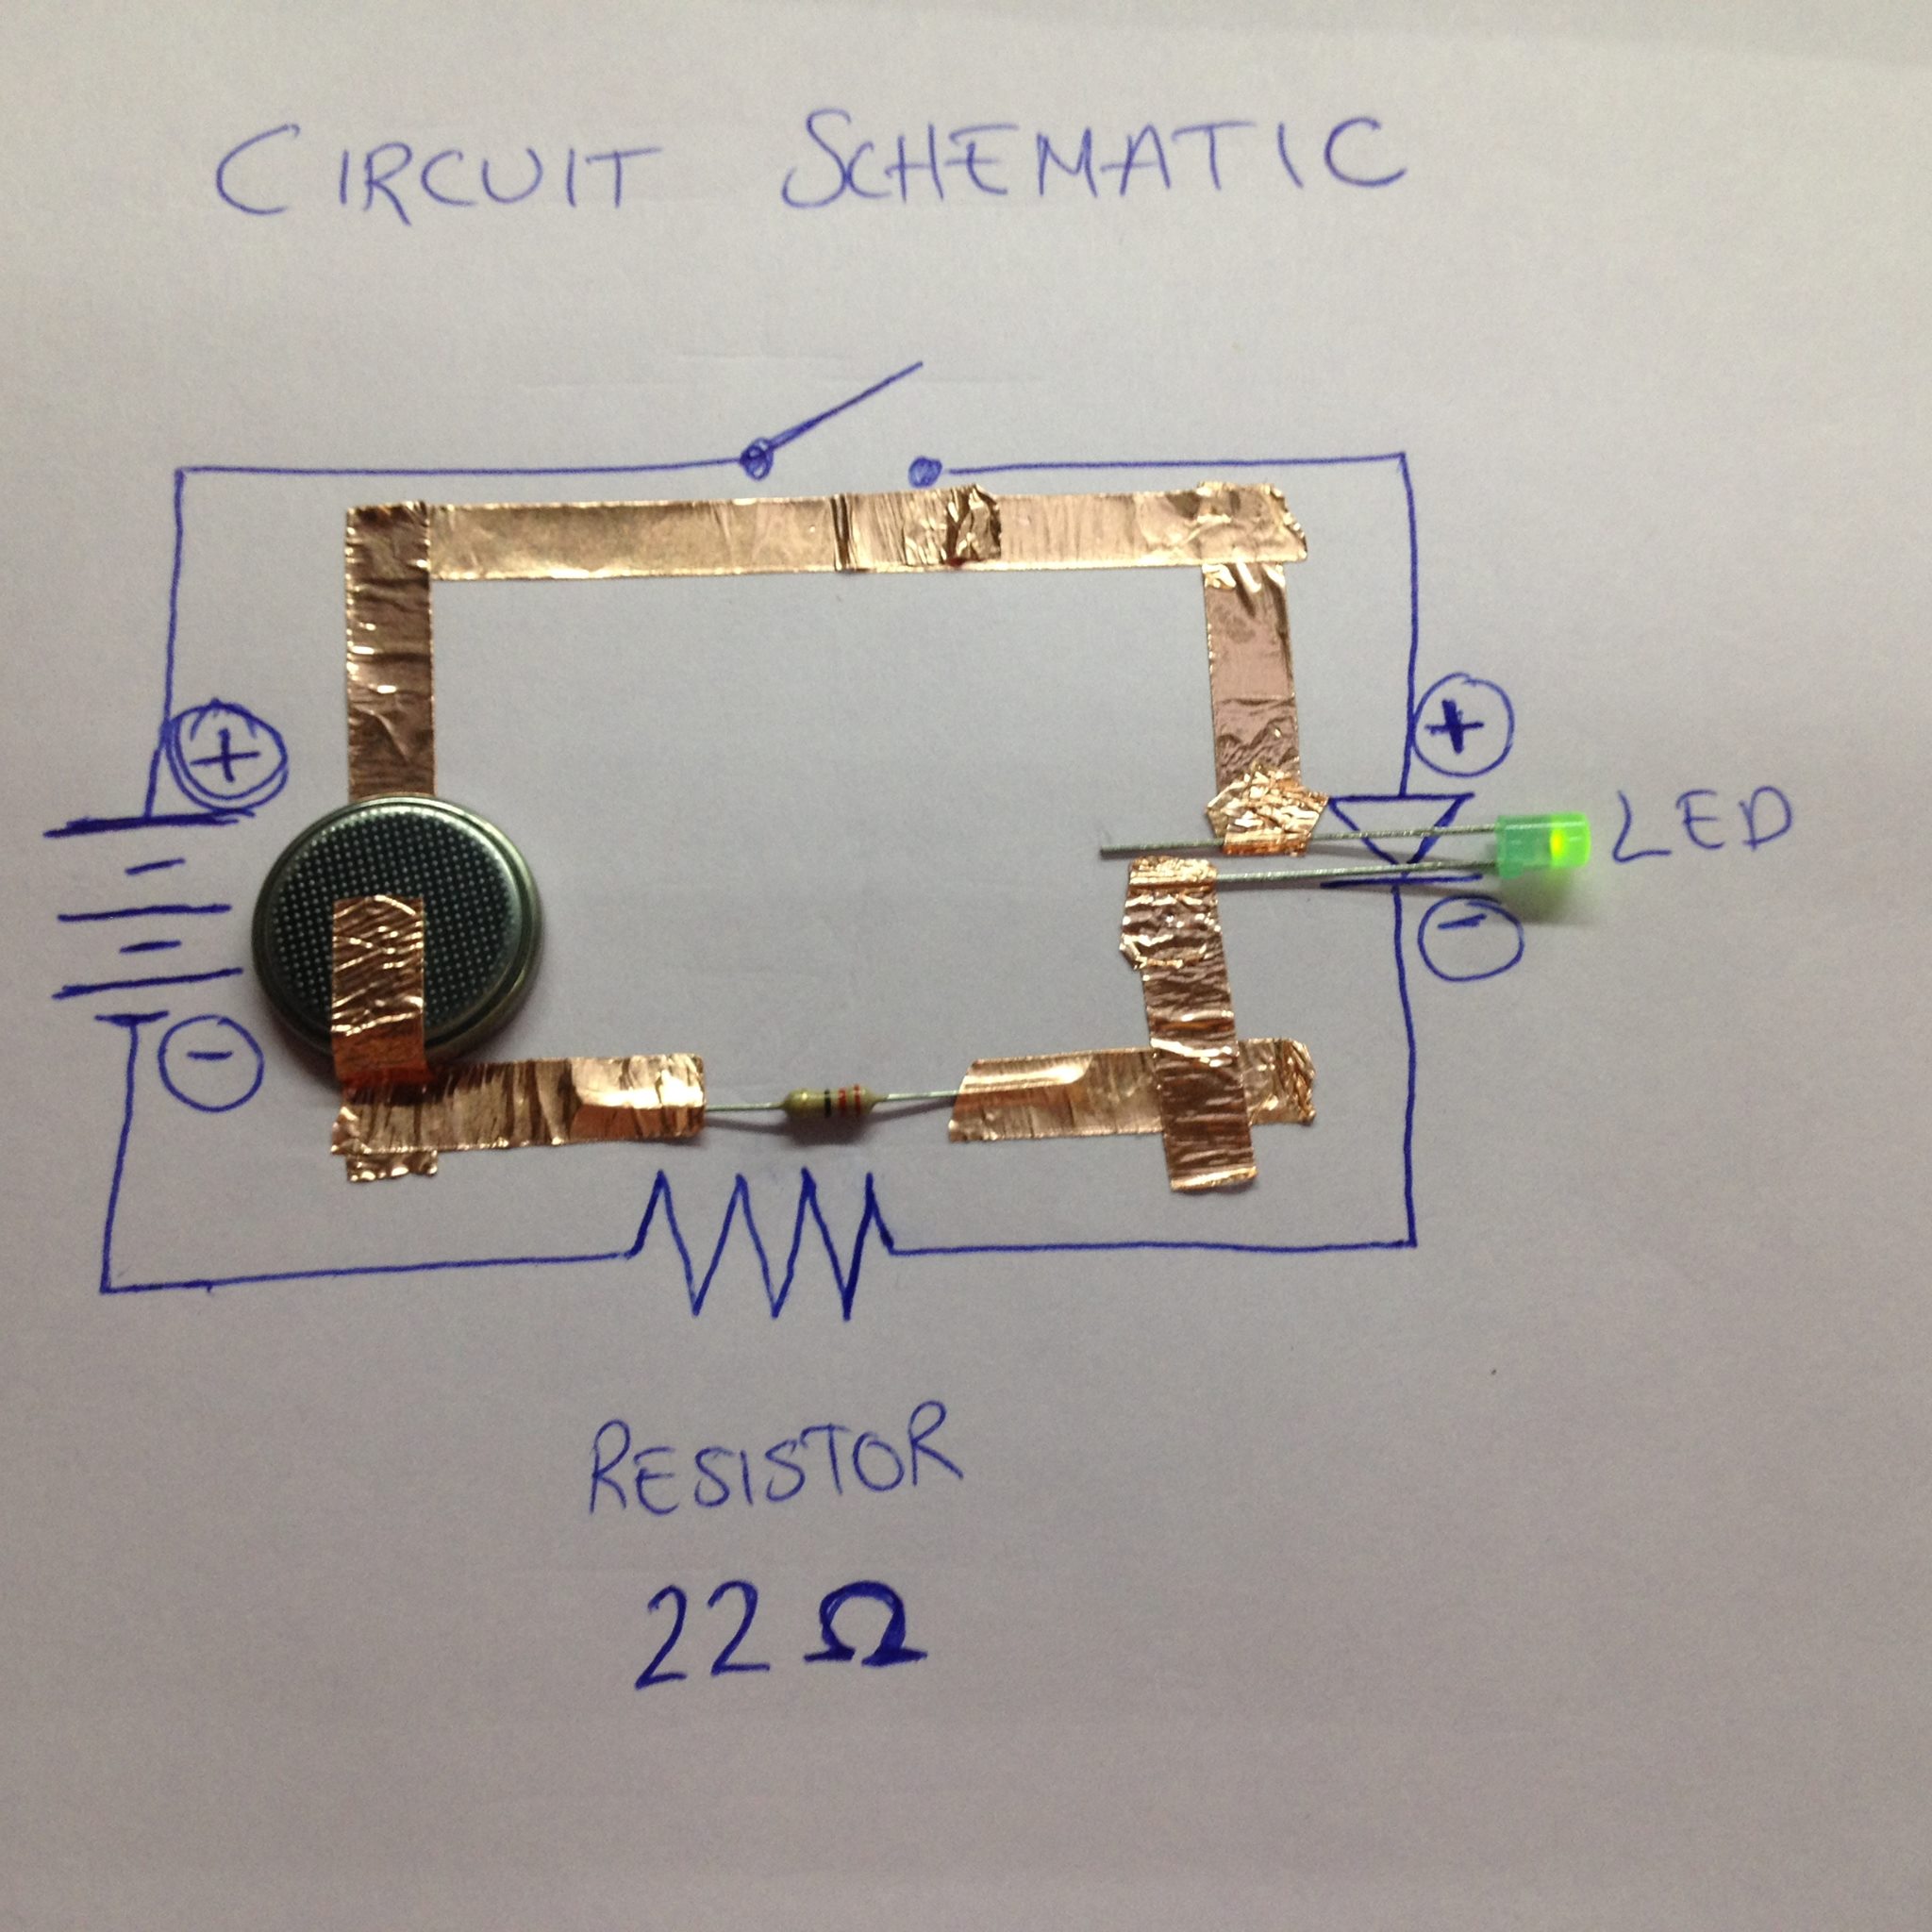 CIRCUIT SCHEMATIC
+ +
LED
- -
RESISTOR
22 Ω